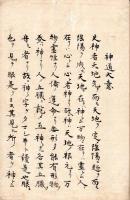 神道大意
夫神者天地ニ先テ而モ天地ヲ定陰陽ニ超テ而モ
陰陽ヲ成天地ニ在テハ神ト云万物ニ在テハ霊ト云人ニ
在テハ心ト云心者神也故ニ神ハ天地ノ根元也万
物ノ霊性也人倫ノ運命也無形シテ能有形物ヲ
養ハ神也人ノ五臓ニ託シテ五神ト成各其五臓ヲ
守ル者也故神ノ字ヲタマシヒト読是也眼ニ
色ヲ見テ眼是ヲ不見其見所ノ者ヲ神ト